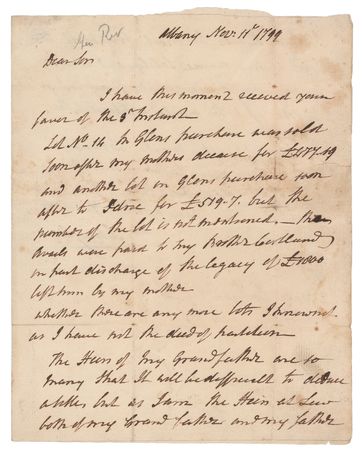 Gen Rev
Albany Nov: 11th 1799
Dear Sir
I have this moment received your
favor of the 5th Instant
Lot No. 14 In Glens purchase was sold
soon after my mothers decease for £487.19
and another lot in Glens purchase soon
after to for £519-7. but the
number of the lot is not mentioned - the
avails were paid to my Brother Cortland
in part discharge of the legacy of £1000
left him by my mother
whether there are any more lots I know not
as I have not the deed of partition
The Heirs of my Grand father are so
many that It will be difficult to deduce
a title, but as I am the Heir at Law
both of my Grand father and my father